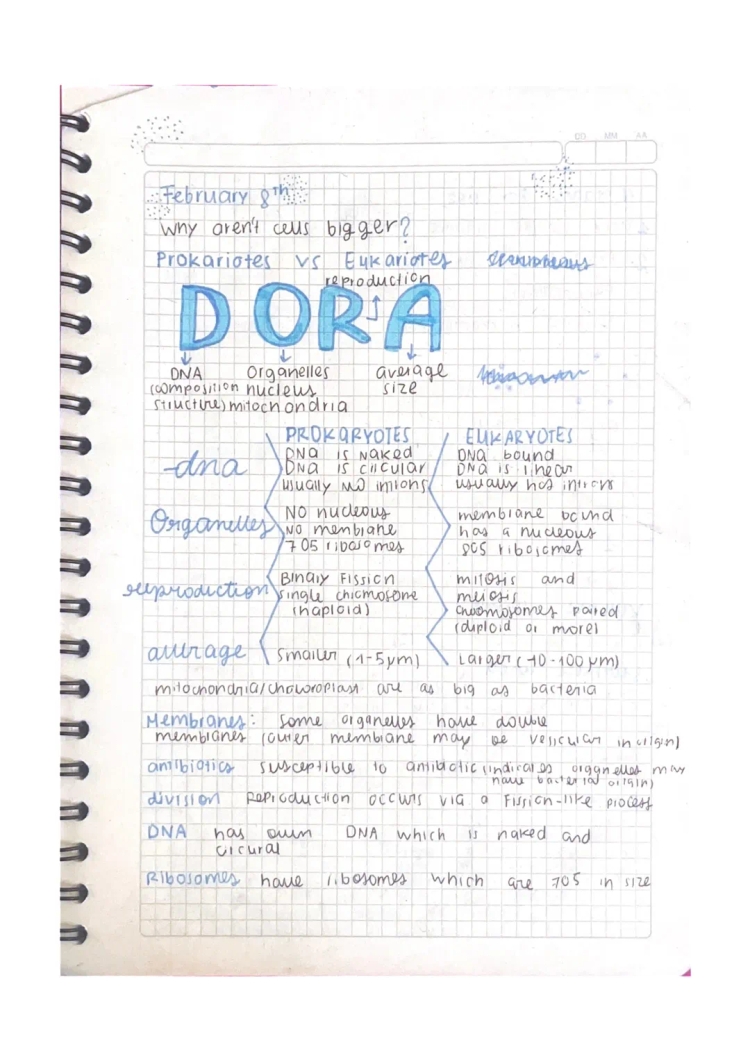 DD MM AA
February 8th
Why aren't cells bigger?
Prokariotes vs Eukariotes
reproduction
DORA
DNA Organelles average
(composition nucleus size
structure) mitochondria
PROKARYOTES EUKARYOTES
-dna DNA is naked DNA bound
DNA is circular DNA is linear
usually NO introns usually has introns
Organelles NO nucleous membrane bound
NO membrane has a nucleous
70S ribosomes 80S ribosomes
reproduction Binary Fission mitosis and
single chromosome meiosis
(haploid) chromosomes paired
(diploid or more)
average Smaller (1-5μm) Larger (-10-100 μm)
mitochondria/chloroplast are as big as bacteria
Membranes: some organelles have double
membranes (outer membrane may be vesicular in origin)
antibiotics susceptible to antibiotic (indicates organelles may
have bacterial origin)
division Reproduction occurs via a Fission-like process
DNA has own DNA which is naked and
circural
Ribosomes have ribosomes which are 70S in size